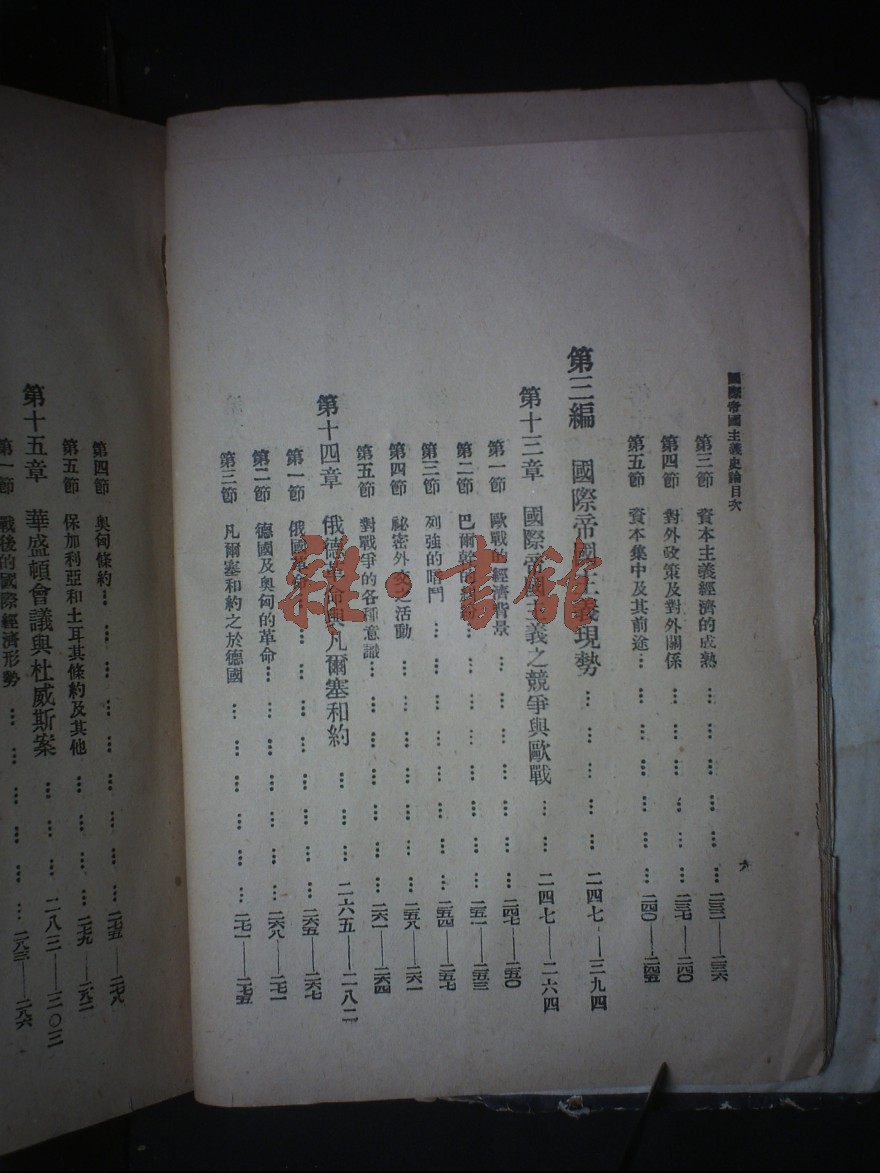 國際帝國主義史論目次
第三節 資本主義經濟的成熟 … … … … … … 二三二——二三六
第四節 對外政策及對外關係 … … … … … … 二三七——二四〇
第五節 資本集中及其前途… … … … … … … 二四〇——二四五
第三編 國際帝國主義現勢 … … … … … 二四七——三九四
第十三章 國際帝國主義之競爭與歐戰 … … 二四七——二六四
第一節 歐戰的經濟背景 … … … … … … … 二四七——二五〇
第二節 巴爾幹的 … … … … … … … 二五一——二五三
第三節 列強的暗鬥 … … … … … … … 二五四——二五七
第四節 祕密外交之活動 … … … … … … … 二五八——二六一
第五節 對戰爭的各種意識 … … … … … … 二六一——二六四
第十四章 俄德革命與凡爾塞和約 … … … 二六五——二八二
第一節 俄國革命… … … … … … … … 二六五——二六七
第二節 德國及奧匈的革命… … … … … … … 二六八——二七一
第三節 凡爾塞和約之於德國 … … … … … … 二七一——二七五
六
第四節 奧匈條約… … … … … … … … … 二七五——二七八
第五節 保加利亞和土耳其條約及其他 … … … … 二七九——二八二
第十五章 華盛頓會議與杜威斯案 … … … 二八三——三〇三
第一節 戰後的國際經濟形勢 … … … … … … 二八三——二八六
雜·書舘